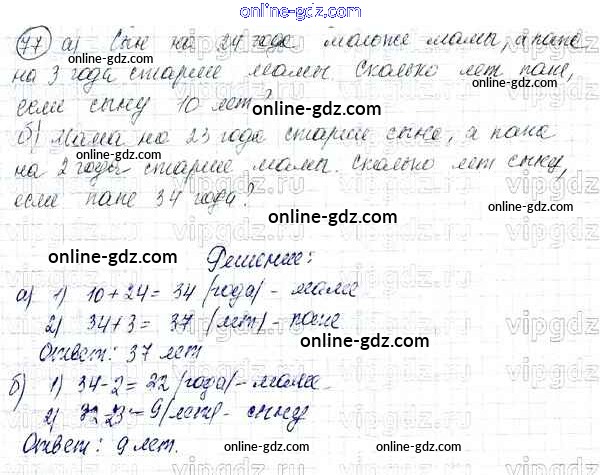 online-gdz.com
77 а) Сын на 24 года моложе мамы, а папа
на 3 года старше мамы. Сколько лет папе,
если сыну 10 лет?
online-gdz.com
online-gdz.com
б) Мама на 23 года старше сына, а папа
на 2 года старше мамы. Сколько лет сыну,
online-gdz.com
если папе 34 года?
online-gdz.com
online-gdz.com
Решение:
а) 1) 10+24= 34 (года) - маме
online-gdz.com
2) 34+3= 37 (лет) - папе
online-gdz.com
Ответ: 37 лет
vipgdz
б) 1) 34-2=22 (года) - маме
online-gdz.com
2) 32-23=9 (лет) - сыну
online-gdz.com
Ответ: 9 лет.
online-gdz.com